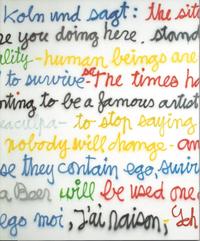 Koln und sagt: the site
re you doing here. stand
lity - human beings are
to survive - se The times ha
nting to be a famous artist
eacilpa - to stop saying
nobody will change - an
se they contain ego, swiri
a Boer will be used one
ego moi, j'ai raison, - Ych